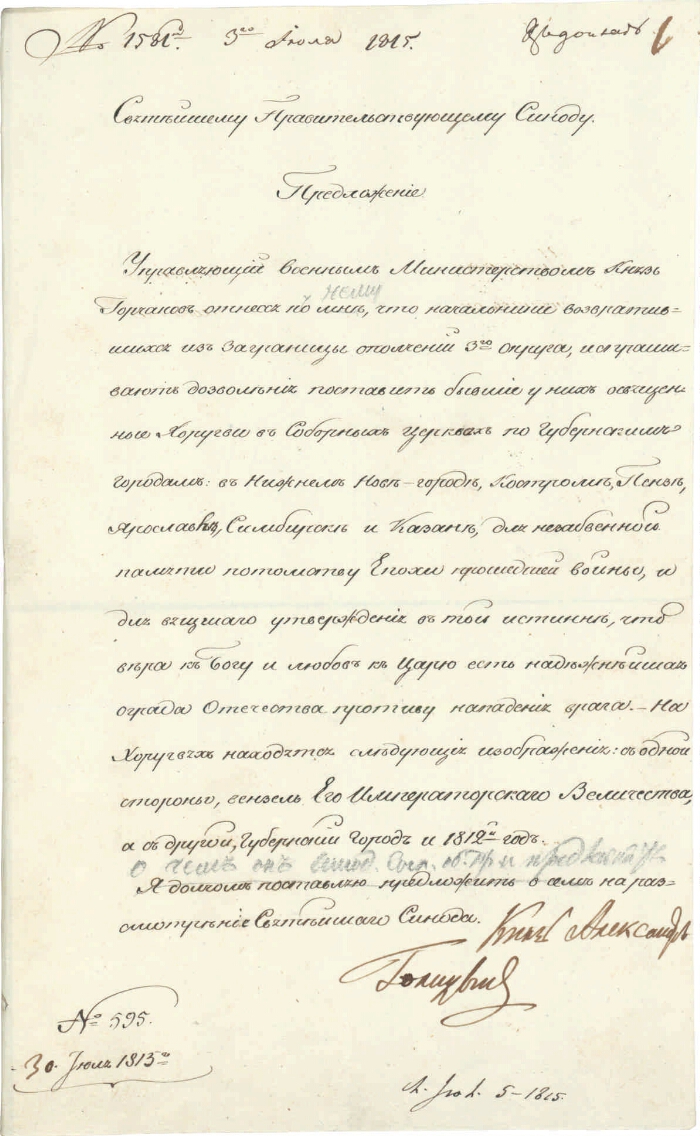 № 1581й. 3го Июля 1815.
Святѣйшему Правительствующему Синоду.
Предложеніе
Управляющій военнымъ Министерствомъ Князь
нему
Горчаковъ отнесся ко мнѣ, что начальники возвратив-
шихся изъ Заграницы ополченій 3го Округа, испраши-
ваютъ дозволѣнія поставить бывшіе у нихъ освящен-
ные Хоругви въ Соборныхъ Церквахъ по Губернскимъ
городамъ: въ Нижнемъ Новѣ-городѣ, Костромѣ, Пензѣ,
Ярославлѣ, Симбирскѣ и Казанѣ, для незабвенной
памяти потомству Епохи прошедшей войны, и
для вящшаго утвержденія въ той истиннѣ, что
вѣра къ Богу и любовь къ Царю есть надѣжнѣйшая
ограда Отечества противу нападенія врага. - На
Хоругвяхъ находятся слѣдующія изображенія: съ одной
стороны, вензель Его Императорскаго Величества,
а съ другой, Губернскій Городъ и 1812й годъ.
о чемъ онъ
Я долгомъ поставляю предложить о семъ на раз-
смотрѣніе Святѣйшаго Синода. Князь Александръ
Голицынъ
№ 595.
30 Іюня 1815го
5 - 1815.